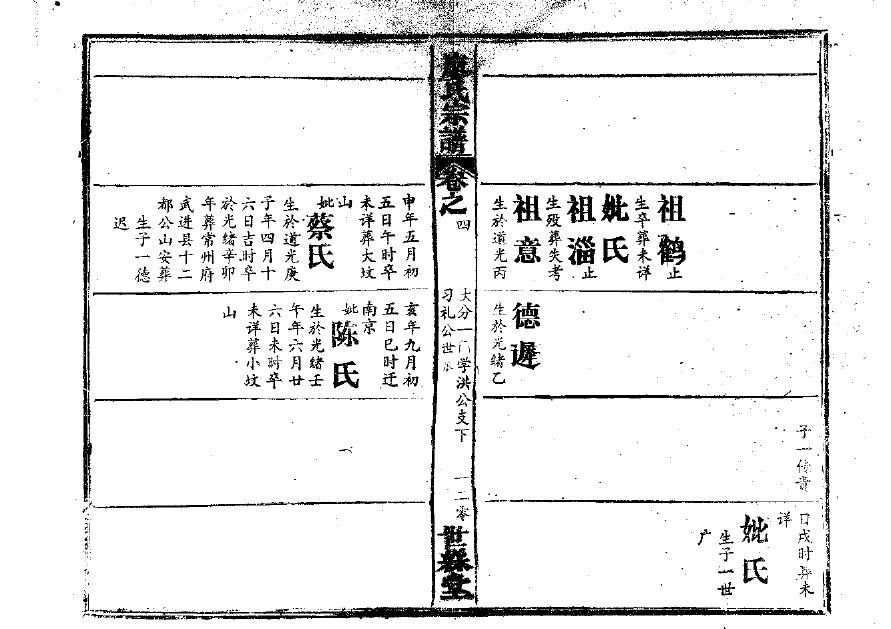 祖鹤止
生卒葬未详
妣氏
祖淄止
生殁葬失考
祖意
生於道光丙
申年五月初
五日午时卒
未详葬大坟
山
妣蔡氏
生於道光庚
子年四月十
六日吉时卒
於光绪辛卯
年葬常州府
武进县十二
都公山安葬
生子一德
迟
德遲
生於光绪乙
亥年九月初
五日巳时迁
南京
妣陈氏
生於光绪壬
午年六月廿
六日未时卒
未详葬小坟
山
子一傳
日戌时葬未
详
妣氏
生子一世
广
廖氏宗譜
卷之四
大分一门学洪公支下
习礼公世派
一二零
世綵堂